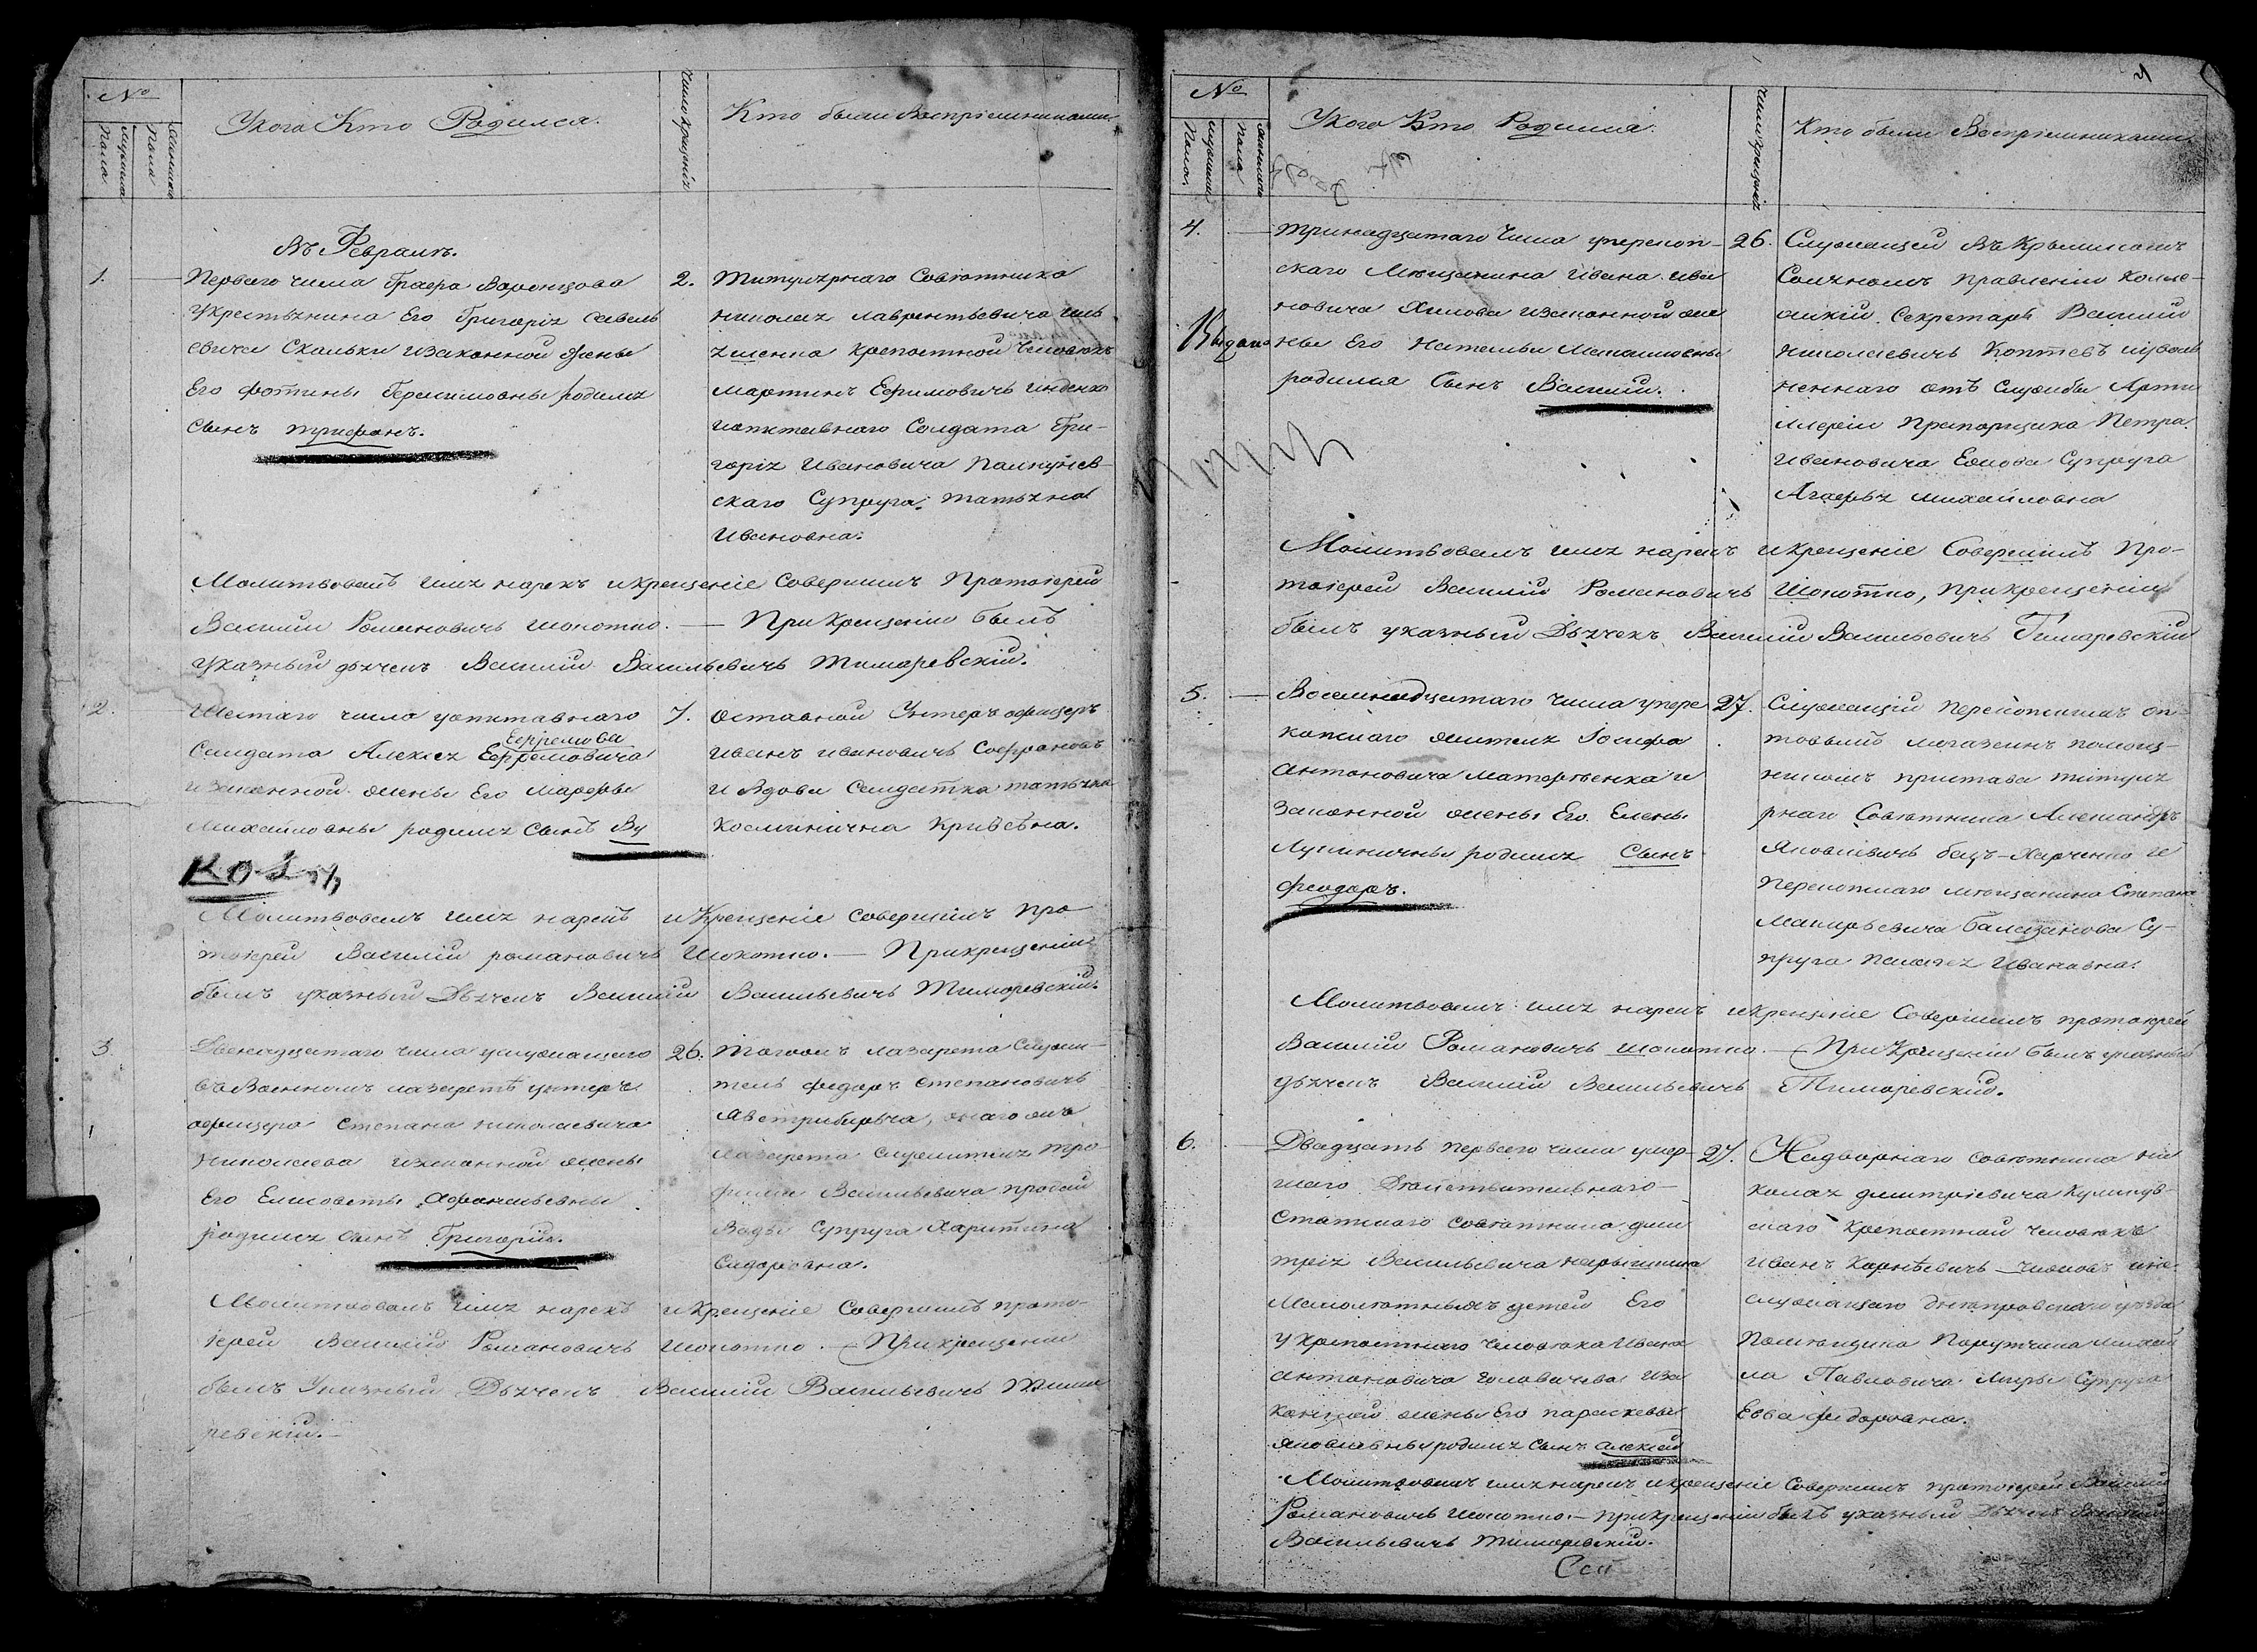 №
Мужеска Пола
Женска Пола
У кого Кто Родился.
Число крещенія
Кто были Воспріемниками
Въ Февралѣ.
1.
Перваго числа Графа Воронцова
Укрестьянина Его Григорія Савель
евича Скальки изаконной Жены
Его Фотины Герасимовны родился
Сынъ Трифонъ.
2.
Титулярнаго Совѣтника
Николая Лаврентьевича
крепостной Человѣкъ
Мартинъ Ефимовичъ
Солдата Гри-
горія Ивановича
скаго Супруга Татьяна
Ивановна.
Молитвовалъ имя нарекъ икрещеніе Совершилъ Протоіерей
Василій Романовичъ Шокотко. — При Крещеніи былъ
указный дьячекъ Василій Васильевичъ Тимаревскій.
2.
Шестаго числа уотставнаго
Ефремова
Солдата Алексея Ефремовича
изаконной жены Его Марфы
Михайловны родился Сынъ Ву
колъ
7.
Оставной Унтеръ офицеръ
Иванъ Ивановичъ Софроновъ
и Вдова Солдатка Татьяна
Косминична Кривѣна.
Молитвовалъ имя нарекъ икрещеніе совершилъ про
тоіерей Василій Романовичъ Шокотко. — Прикрещеніи
былъ указный Дьячекъ Василій Васильевичъ Тимаревскій.
3.
Двенадцатаго числа услужащаго
въ Военномъ лазаретѣ унтеръ
офицера Степана Николаевича
Николаева изаконной жены
Его Елисоветы Афонасьевны
родился сынъ Григорій.
26.
Тогожъ лазарета Служи-
тель Федоръ Степановичъ
онаго жъ
Лазарета служителя Тро-
фима Васильевича
Воды Супруга Харитина
Сидоровна.
Молитвовалъ имя нарекъ икрещеніе Совершилъ прото-
іерей Василій Романовичъ Шокотко. — Прикрещеніи
былъ Указный Дьячекъ Василій Васильевичъ Тима
ревскій.
№
Мужеска Пола
Женска Пола
У кого Кто Родился.
Число крещенія
Кто были Воспріемниками
4.
Выдано
Тринадцатаго Числа уперекоп-
скаго Мѣщанина Ивана Ива
новича Хилова изаконной же
ны Его Натальи
родился Сынъ Василій.
26.
Служащей въ Крымскомъ
Соляномъ правленіи Колле-
жскій Секретарь Василій
Николаевичъ Коптевъ иуволь
неннаго отъ Службы Арти
ллеріи Прапорщика Петра
Ивановича Супруга
Агафья Михайловна
Молитвовалъ имя нарекъ икрещеніе Совершилъ Про-
тоіерей Василій Романовичъ Шокотко, прикрещеніи
былъ указный Дьячекъ Василій Васильевичъ Тимаревскій
5.
Восемнадцатаго Числа упере
копскаго жителя Іосифа
Антоновича
Законной жены Его Елены
Лукиничны родился Сынъ
Феодоръ.
27.
Служащій Перекопскимъ оп-
товымъ магазеинъ помощ-
никомъ пристава титуля
рнаго Совѣтника Александръ
Яковлевичъ и
Перекопскаго мѣщанина Степана
Су-
пруга Пелагея Ивановна.
Молитвовалъ имя нарекъ икрещеніе Совершилъ протоіерей
Василій Романовичъ Шокотко — При Крещеніи былъ указный
дьячекъ Василій Васильевичъ Тимаревскій.
6.
Двадцать перваго числа умор-
скаго Дѣйствительнаго
Статскаго совѣтника Дми
трія Васильевича Нарышкина
Малолѣтныхъ детей Его
у крепостнаго человѣка Ивана
Антоновича Головачева иза
конной жены Его параскевы
Яковлевны родился Сынъ Алексій
27.
Надворнаго совѣтника Ни
колая Дмитріевича
скаго Крепостной Человѣкъ
Иванъ Корнѣевичъ
Днѣпровскаго уѣзда
Помѣщика Порутчика Михай
ла Павловича Супруга
Евва Федоровна.
Молитвовалъ имя нарекъ икрещеніе Совершилъ протоіерей Василій
Романовичъ Шокотко. — прикрещеніи былъ указный Дьячекъ Василій
Васильевичъ Тимаревскій.